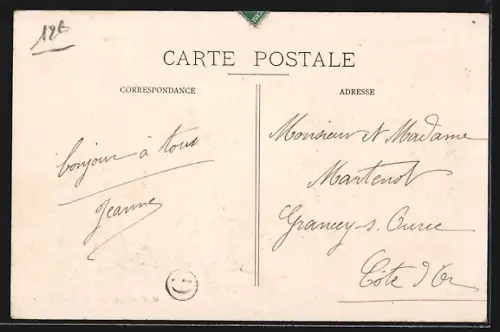 12€
CARTE POSTALE
CORRESPONDANCE
ADRESSE
bonjour à tous
Jeanne
Monsieur et Madame
Martenot
Grancey-s. Ource
Côte d'Or
G